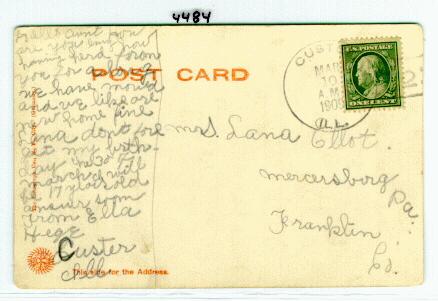 4484
Hello aunt how
are you em now
having herd from
you for a long
we have moved
and we like are
new home fine
and dont fore
get my birth-
day the 30 of
march I will
be 17 years old
answer soon
from Ella
Hege
Custer
Ill
POST CARD
This side for the Address.
CUSTER
MAR
10
A.M.
1909
ILL.
U.S. POSTAGE
ONE CENT
2
Mrs. Lana Ellot.
Mercersborg
Pa.
Franklin
Co.